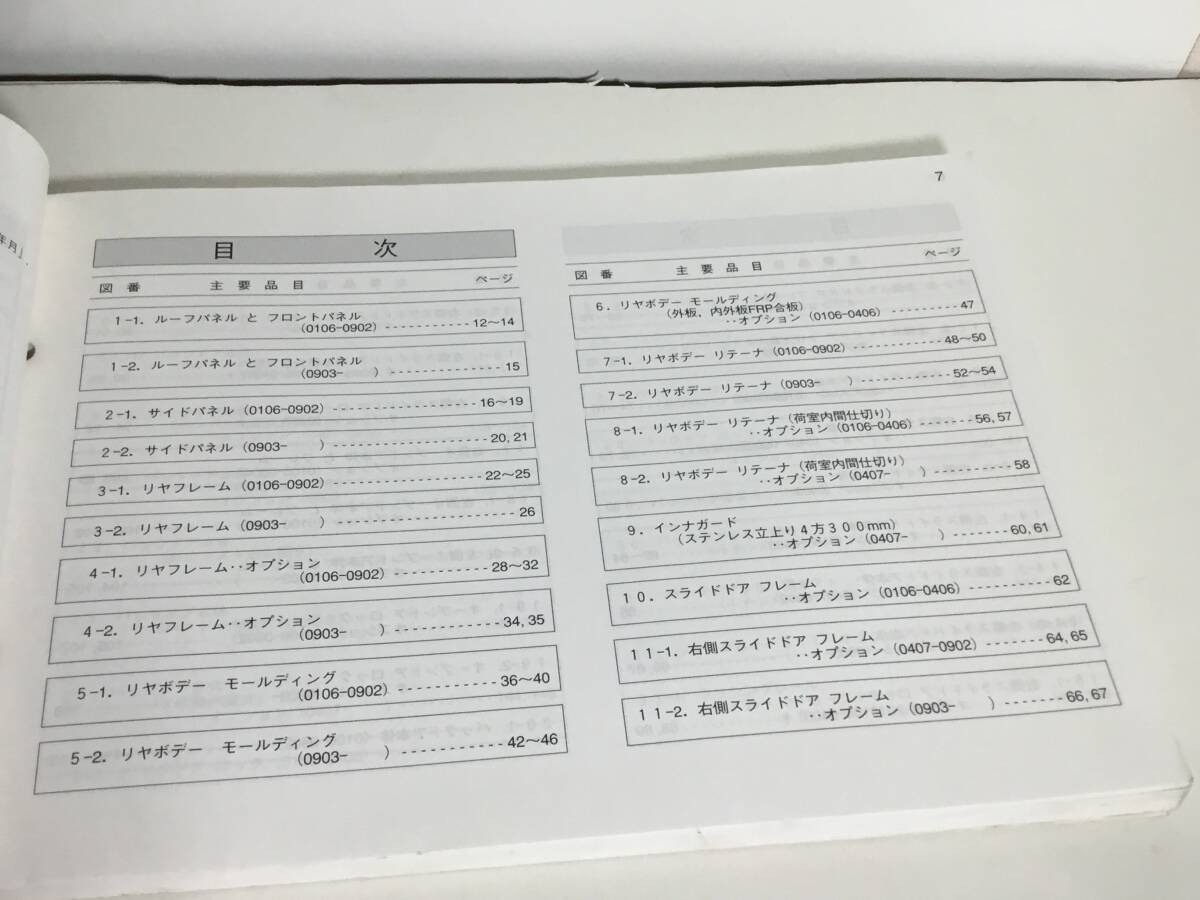 年月
7
目 次
図番 主要品目 ページ
1-1. ルーフパネル と フロントパネル
(0106-0902) ------------ 12～14
1-2. ルーフパネル と フロントパネル
(0903- ) ------------ 15
2-1. サイドパネル (0106-0902) ------------ 16～19
2-2. サイドパネル (0903- ) ------------ 20, 21
3-1. リヤフレーム (0106-0902) ------------ 22～25
3-2. リヤフレーム (0903- ) ------------ 26
4-1. リヤフレーム‥オプション
(0106-0902) ------------ 28～32
4-2. リヤフレーム‥オプション
(0903- ) ------------ 34, 35
5-1. リヤボデー モールディング
(0106-0902) ------------ 36～40
5-2. リヤボデー モールディング
(0903- ) ------------ 42～46
図番 主要品目 ページ
6. リヤボデー モールディング
(外板, 内外板FRP合板)
‥オプション (0106-0406) ------------ 47
7-1. リヤボデー リテーナ (0106-0902) ------------ 48～50
7-2. リヤボデー リテーナ (0903- ) ------------ 52～54
8-1. リヤボデー リテーナ (荷室内間仕切り)
‥オプション (0106-0406) ------------ 56, 57
8-2. リヤボデー リテーナ (荷室内間仕切り)
‥オプション (0407- ) ------------ 58
9. インナガード
(ステンレス立上り4方300mm)
‥オプション (0407- ) ------------ 60, 61
10. スライドドア フレーム
‥オプション (0106-0406) ------------ 62
11-1. 右側スライドドア フレーム
‥オプション (0407-0902) ------------ 64, 65
11-2. 右側スライドドア フレーム
‥オプション (0903- ) ------------ 66, 67